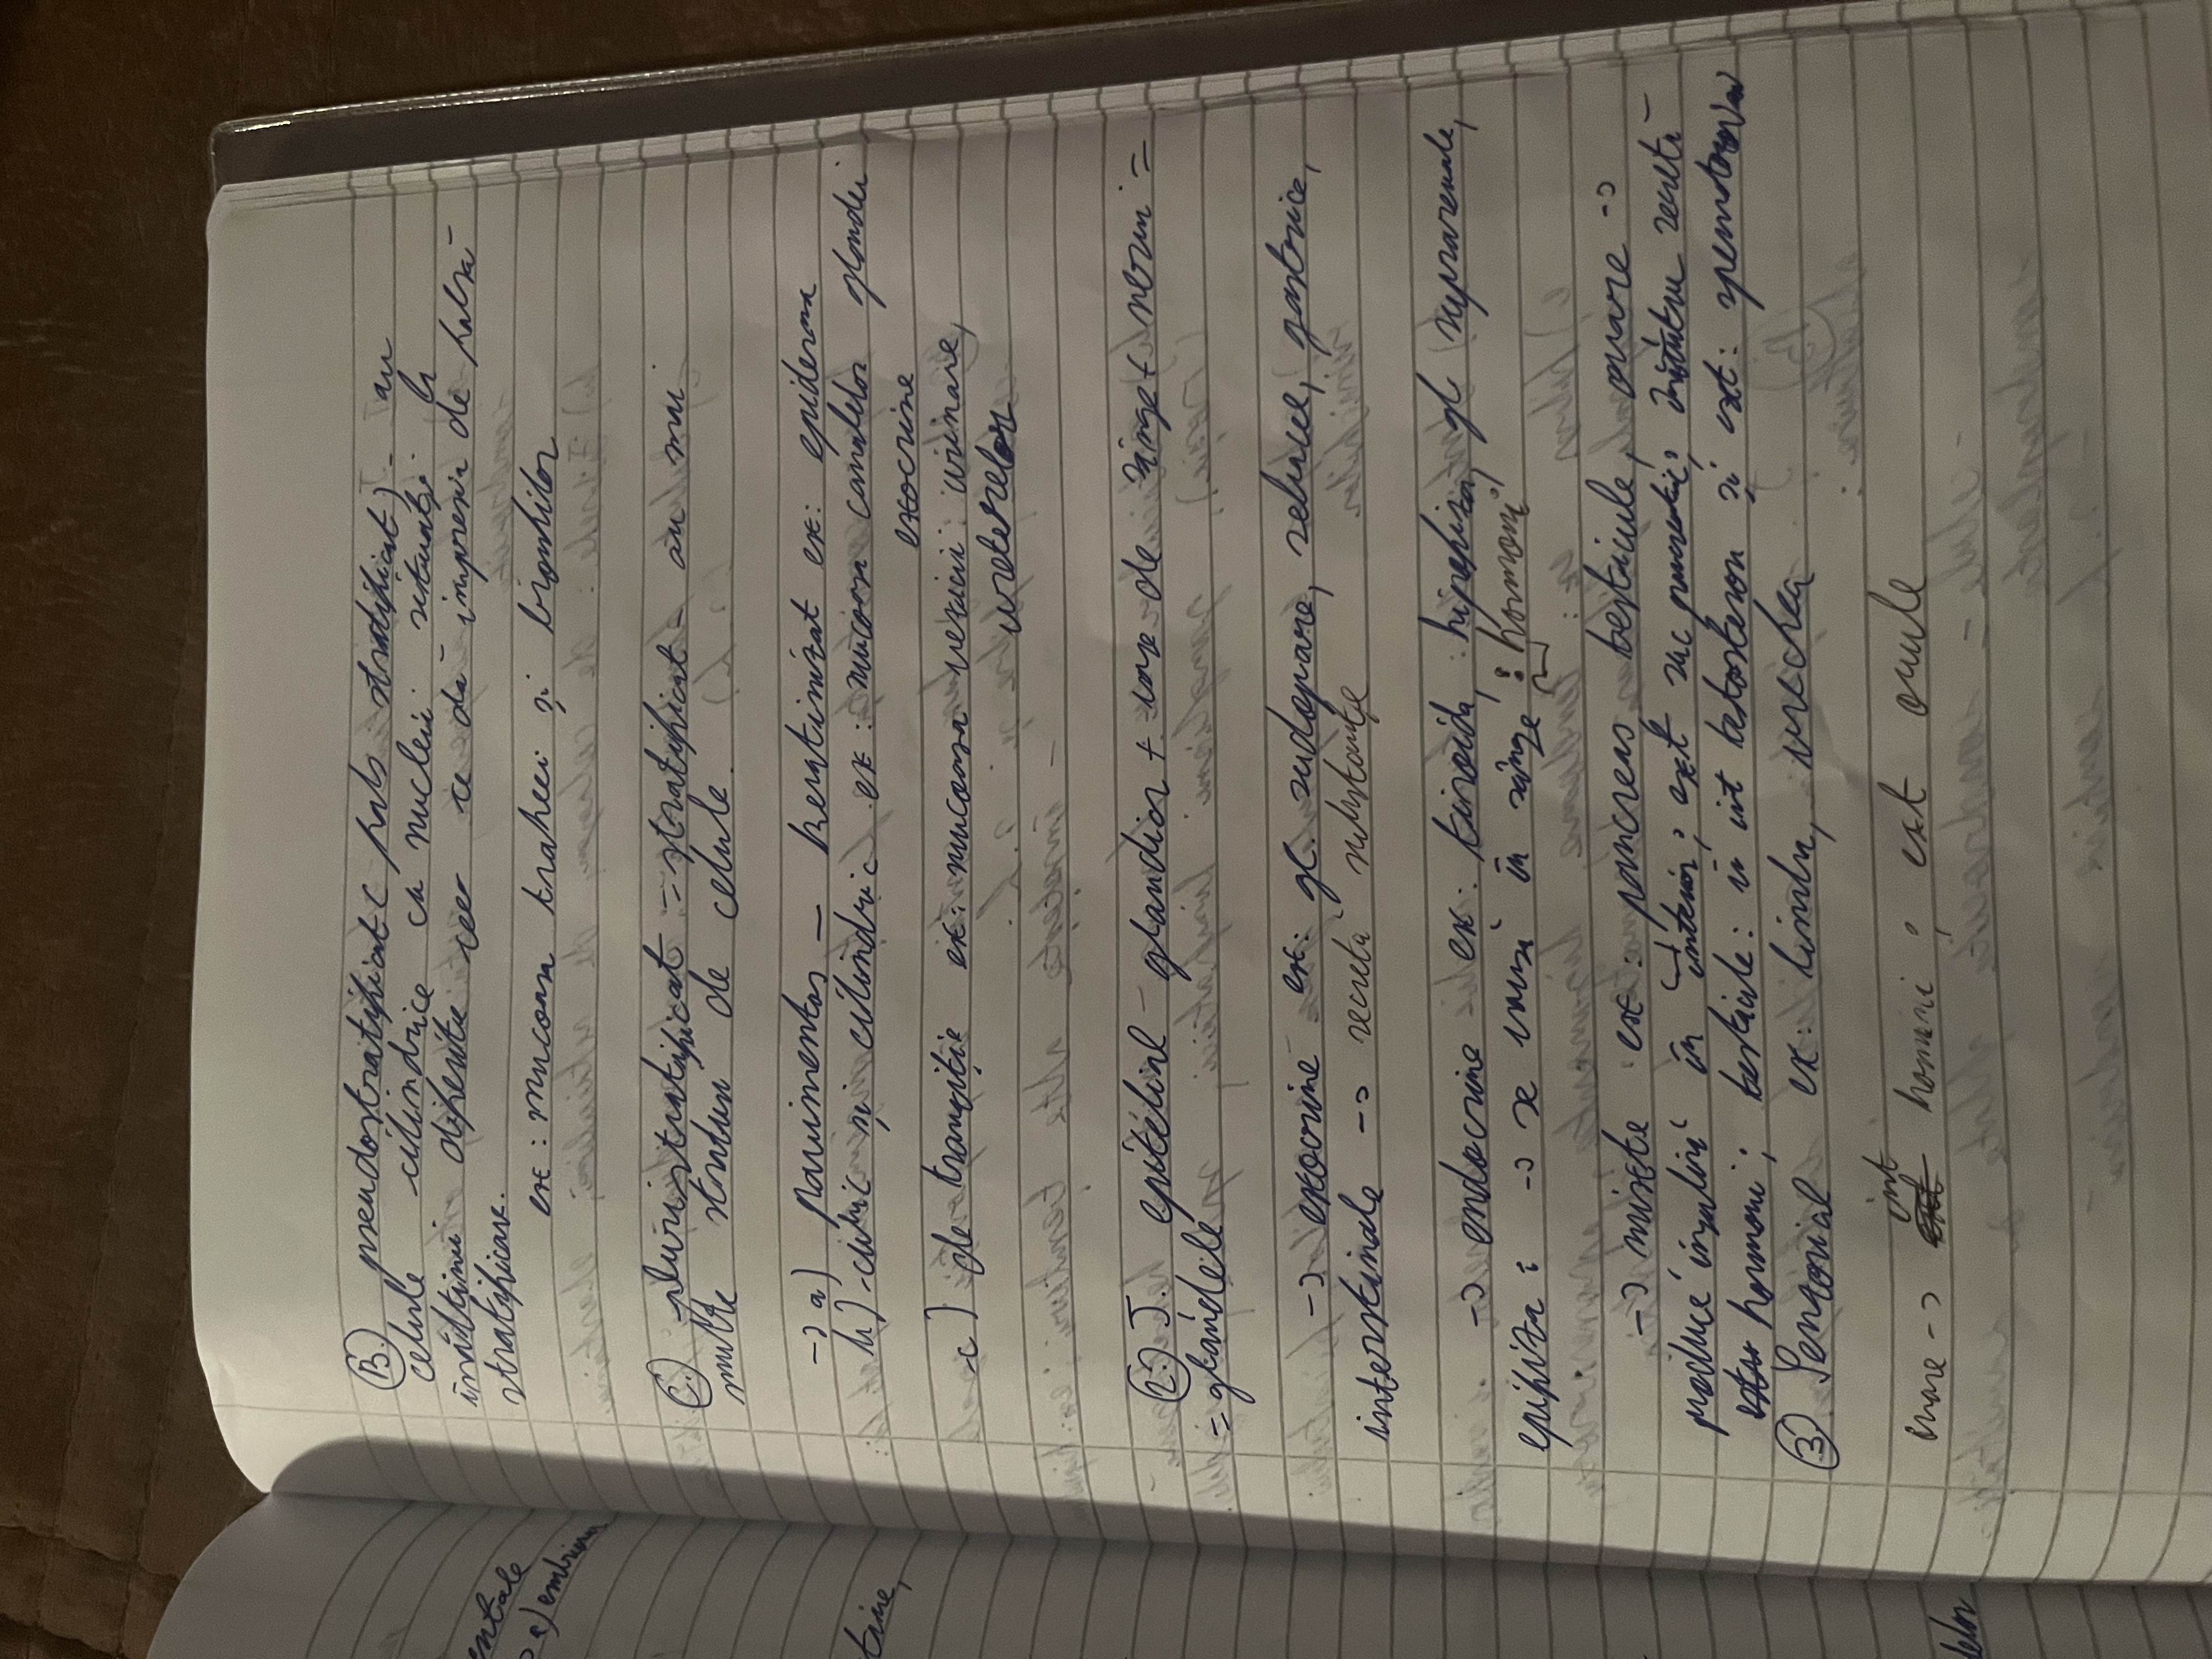 B. pseudostratificat (fals stratificat) - au
celule cilindrice cu nucleii situați la
înălțimi diferite ceea ce dă impresia de falsă
stratificare.
ex: mucoasa traheei și bronhiilor
C. pluristratificat = stratificat - au mai
multe straturi de celule
-> a) pavimentos - keratinizat ex: epiderma
b) cubic și cilindric ex: mucoasa canalelor glandei
exocrine
c) de tranziție ex: mucoasa vezicii urinare,
ureterelor
2. J. epitelial - glandior + vase de sânge + nervi =
= glandele
-> exocrine ex: gl. sudopare, sebacee, gastrice,
intenstinale -> secretă substanțe
-> endocrine ex: tiroida, hipofiza, gl suprarenale,
epifiza : -> se varsă în sânge : hormoni
-> mixte ex: pancreas testicule, ovare ->
produce insulină în interior; ext suc pancreatic;
hormoni; testicule: în int testosteron și ext: spermatozoizi
3 Senzorial ex: limba, urechea
int
ovare -> homoni ; ext ovule
entale
e) embrion
trine,
delor